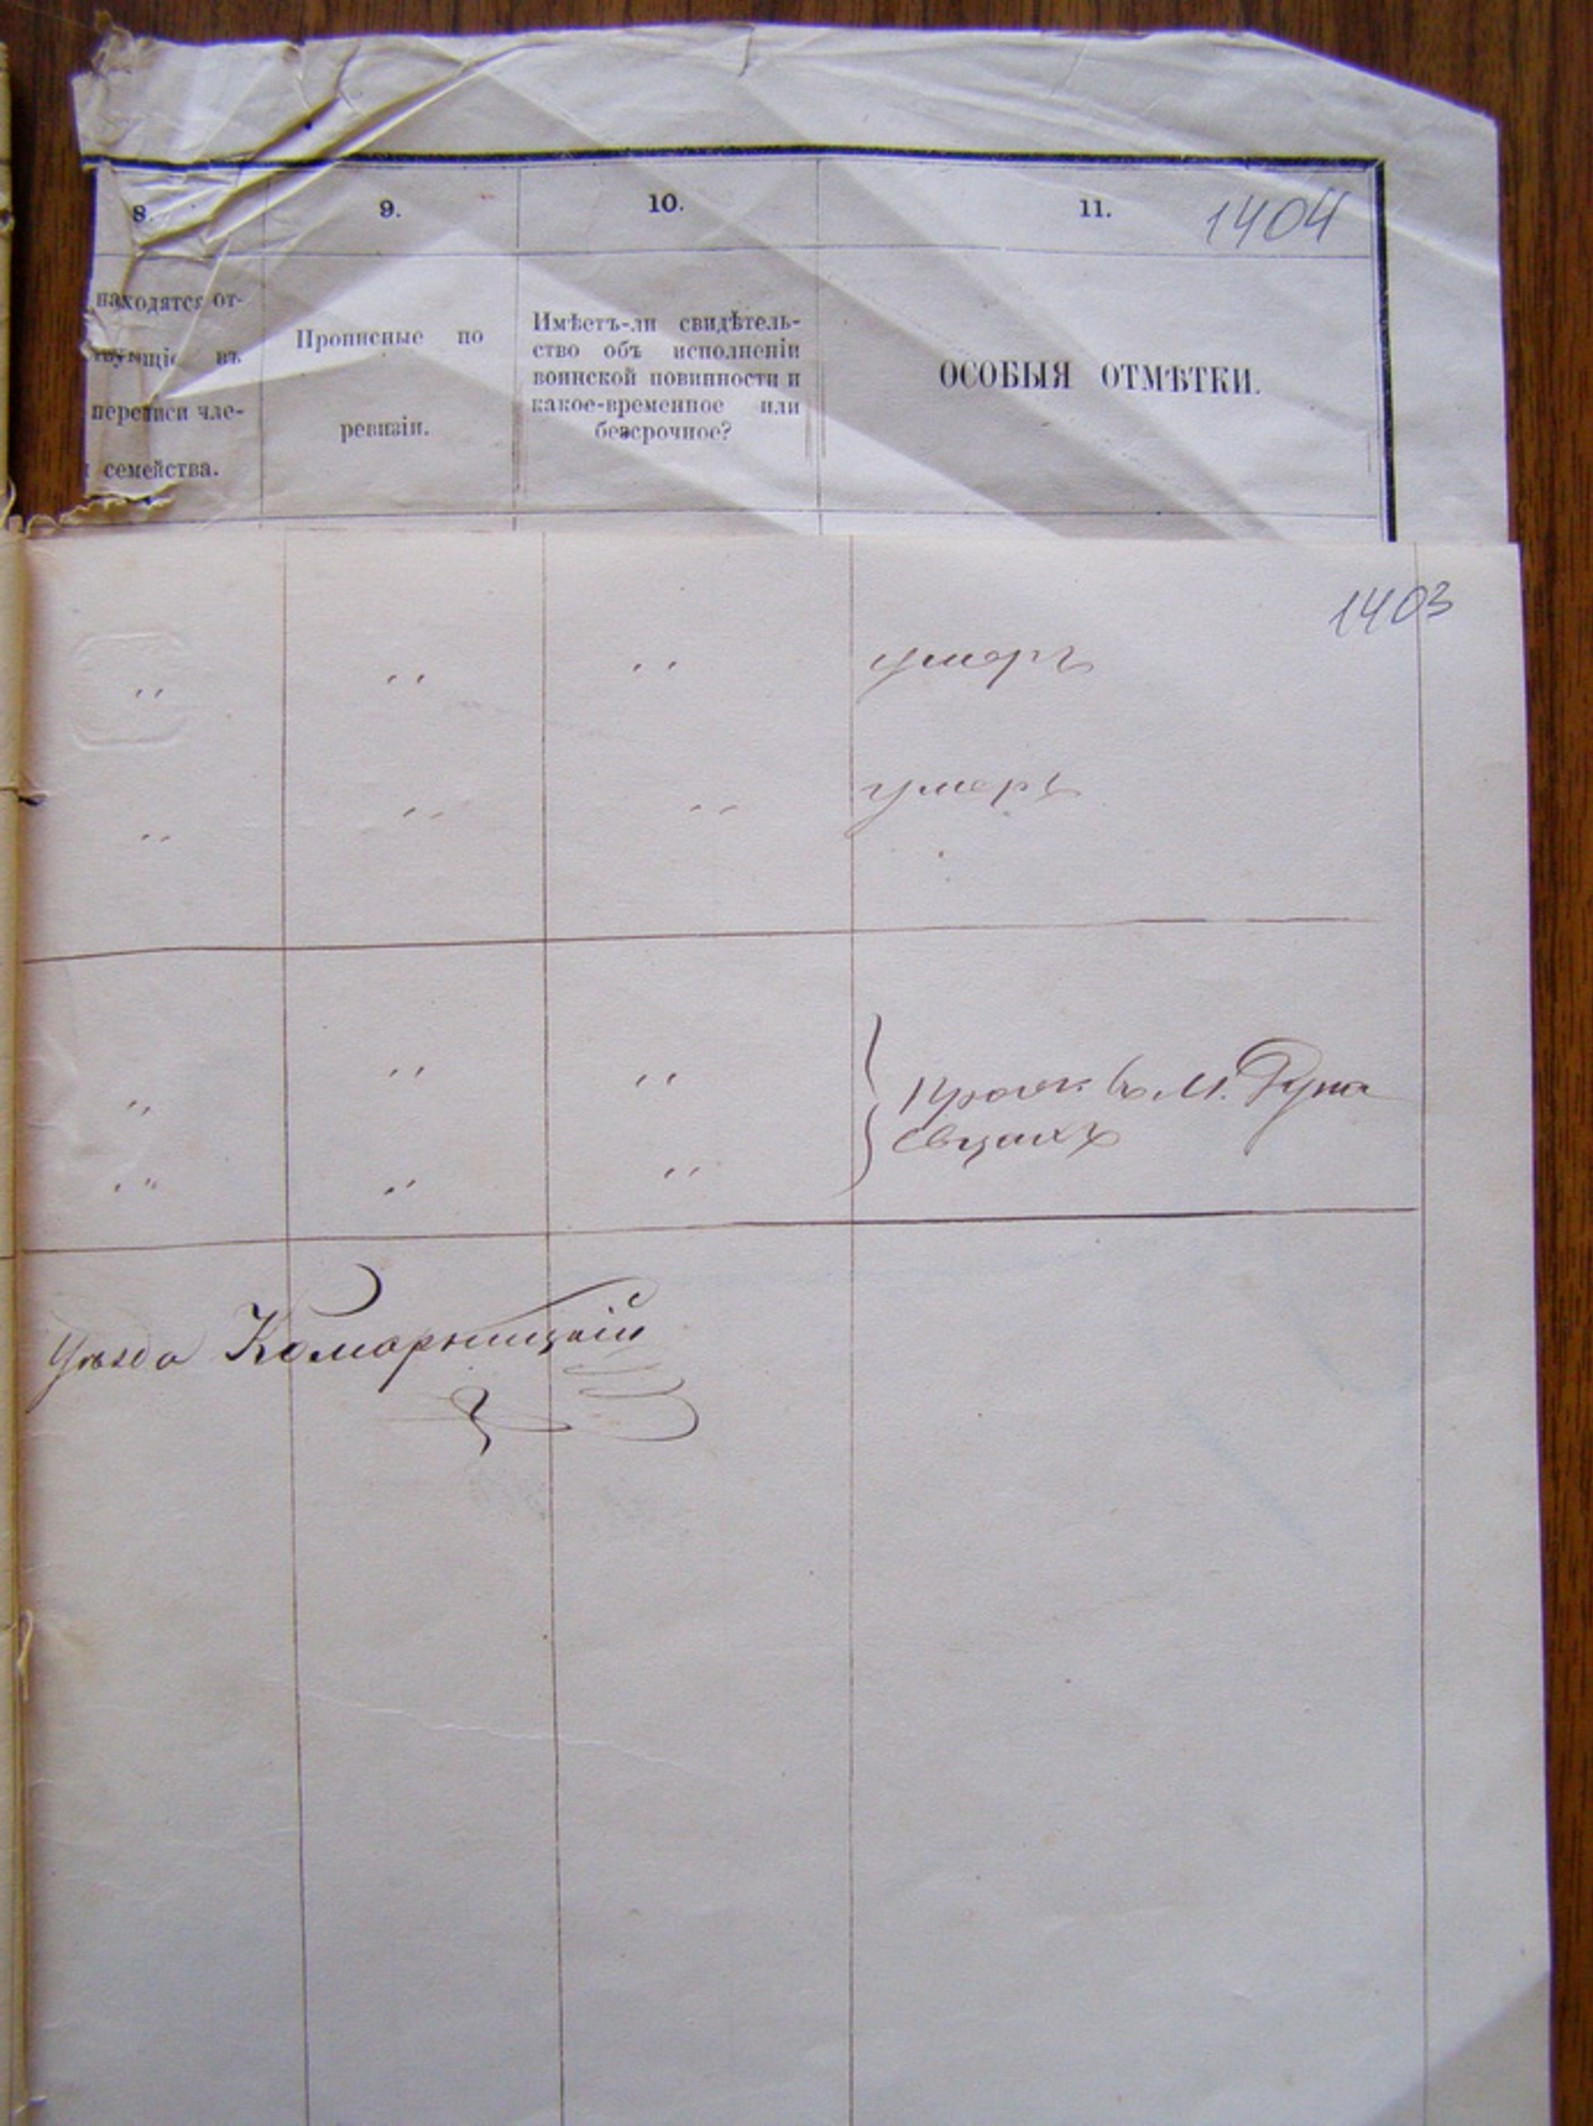 8.
9.
10.
11.
1404
находятся от-
вующіе въ
переписи чле-
семейства.
Прописные по
ревизіи.
Имѣетъ-ли свидѣтель-
ство объ исполненіи
воинской повинности и
какое-временное или
безсрочное?
ОСОБЫЯ ОТМѢТКИ.
1403
" " " умеръ
" " " умеръ
" " "
" " "
въ М.
Уѣзда Комарницкій